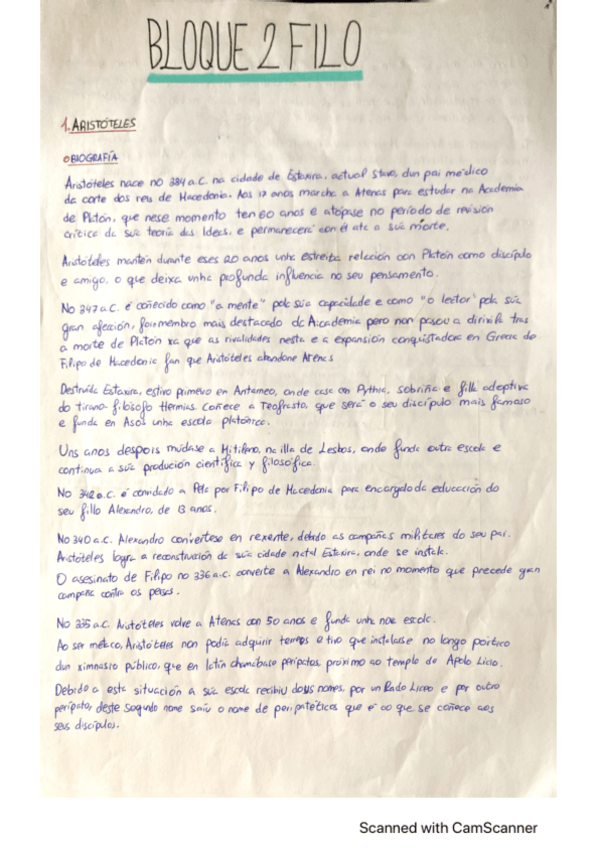 BLOQUE 2 FILO
1. ARISTÓTELES
BIOGRAFÍA
Aristóteles nace no 384 a.C. na cidade de Estaxira, actual Stavo, dun pai médico
da corte dos reis de Macedonia. Aos 17 anos marcha a Atenas para estudar na Academia
de Platón, que nese momento ten 60 anos e atópase no período de revisión
crítica da súa teoría das Ideas, e permanecerá con él ata a súa morte.
Aristóteles mantén durante eses 20 anos unha estreita relación con Platón como discípulo
e amigo, o que deixa unha profunda influencia no seu pensamento.
No 347 a.C. é coñecido como "a mente" pola súa capacidade e como "o leitor" pola súa
gran afección, foi membro mais destacado da Academia pero non pasou a dirixila tras
a morte de Platón xa que as rivalidades nesta e a expansión conquistadora en Grecia de
Filipo de Macedonia fan que Aristóteles abandone Atenas
Destruída Estaxira, estivo primeiro en Antarneo, onde casa con Pythia, sobriña e filla adoptiva
do tirano-filósofo Hermias. Coñece a Teofrasto, que será o seu discípulo mais famoso
e funda en Asos unha escola platónica.
Uns anos despois múdase a Mitilene, na illa de Lesbos, onde funda outra escola e
continua a súa produción científica y filosófica.
No 342 a.C. é convidado a Pela por Filipo de Macedonia para encargado da educación do
seu fillo Alexandro, de 13 anos.
No 340 a.C. Alexandro convertese en rexente, debido as campañas militares do seu pai.
Aristóteles logra a reconstrucion da súa cidade natal Estaxira, onde se instala.
O asesinato de Filipo no 336 a.C. converte a Alexandro en rei no momento que precede gran
campaña contra os persas.
No 335 a.C. Aristóteles volve a Atenas con 50 anos e funda unha nova escola.
Ao ser meteco, Aristóteles non podía adquirir terreos e tivo que instalarse no longo pórtico
dun ximnasio público, que en latín chamábase peripatos, próximo ao templo de Apolo Licio.
Debido a esta situación a súa escola recibiu dous nomes, por un lado Liceo e por outro
peripato, deste segundo nome saíu o nome de peripatéticos que é co que se coñece aos
seus discípulos.
Scanned with CamScanner